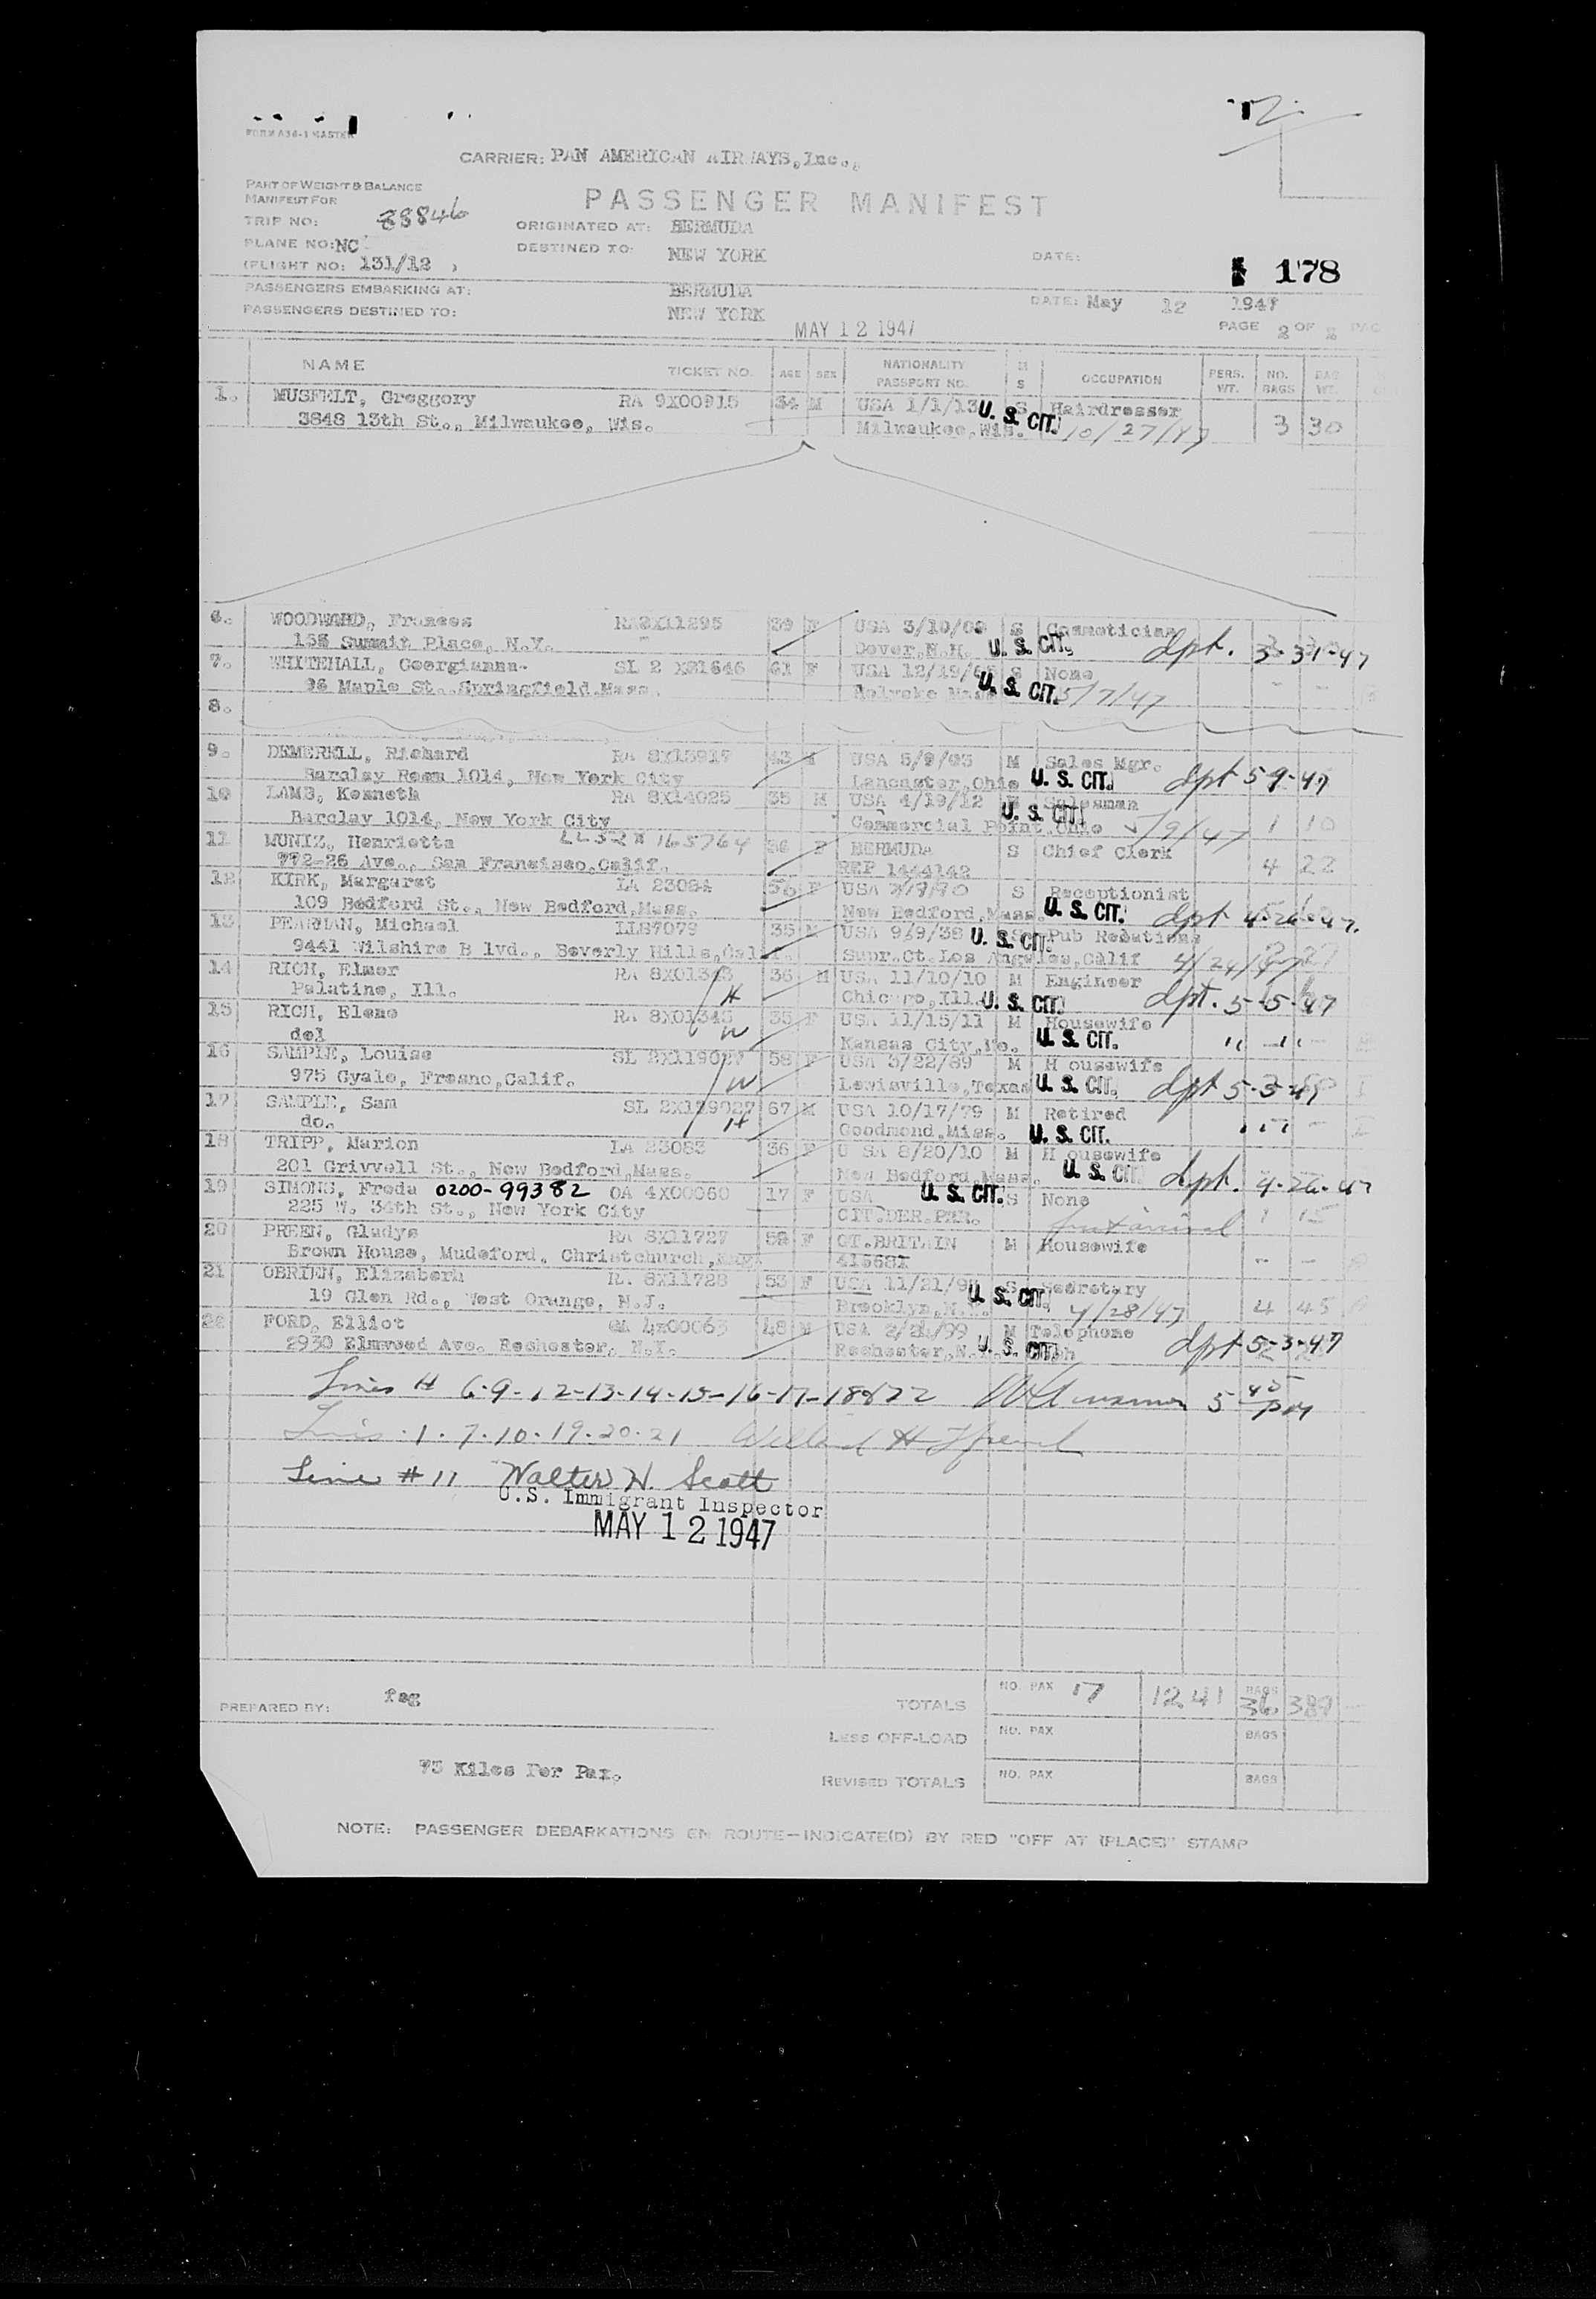 FORM A36-1 MASTER
CARRIER: PAN AMERICAN AIRWAYS, Inc.,
PART OF WEIGHT & BALANCE
MANIFEST FOR
PASSENGER MANIFEST
TRIP NO: 38846
ORIGINATED AT: BERMUDA
PLANE NO: NC
DESTINED TO: NEW YORK
DATE:
(FLIGHT NO: 131/12 )
178
PASSENGERS EMBARKING AT: BERMUDA
DATE: May 12 1947
PASSENGERS DESTINED TO: NEW YORK
MAY 12 1947
PAGE 2 OF 2
NAME TICKET NO. AGE SEX NATIONALITY PASSPORT NO. M S OCCUPATION PERS. WT. NO. BAGS BAG WT.
1. MUSFELT, Greggory RA 9X00915 34 M USA 1/1/13 U. S. CIT. S Hairdresser
3848 13th St., Milwaukee, Wis. Milwaukee, Wis. 10/27/47 3 30
6. WOODWARD, Frances RA8X11295 39 F USA 3/10/08 S Cosmetician
155 Summit Place, N.Y. Dover, N.H. U. S. CIT. dpt. 3-31-47
7. WHITEHALL, Georgianna SL 2 X21646 61 F USA S None
96 Maple St. Springfield Mass. U. S. CIT. 5/7/47
8.
9. DEMERELL, Richard RA 8X15917 43 M USA M Sales Mgr.
Barclay Room 1014, New York City Lancaster, Ohio U. S. CIT. dpt 5-9-47
10 LAMB, Kenneth RA 8X14025 35 M USA 4/19/12 Salesman
Barclay 1014, New York City Commercial Point, Ohio U. S. CIT. 5/9/47 1 10
11 MUNIZ, Henrietta F BERMUDA S Chief Clerk
772-26 Ave., San Francisco, Calif. REP 1444142 4 22
12 KIRK, Margaret LA 23084 56 F USA S Receptionist
109 Bedford St., New Bedford, Mass. New Bedford, Mass. U. S. CIT. dpt 4-26-47.
13 PEARMAN, Michael LL87079 35 M USA 9/9/38 U. S. CIT. S Pub Relations
9441 Wilshire B lvd., Beverly Hills, Calif. Supr. Ct. Los Angeles, Calif 4/24/47
14 RICH, Elmer RA 8X01343 36 M USA 11/10/10 M Engineer
Palatine, Ill. H Chicago, Ill. U. S. CIT. dpt. 5-5-47
15 RICH, Elene RA 8X01345 35 F USA 11/15/11 M Housewife
do1 W Kansas City, Mo. U. S. CIT. " - "
16 SAMPLE, Louise SL 2X119027 58 F USA 3/22/89 M H ousewife
975 Gyale, Fresno, Calif. W Lewisville, Texas U. S. CIT. dpt 5-3-47
17 SAMPLE, Sam SL 2X119027 67 M USA 10/17/79 M Retired
do. H Goodmond, Miss. U. S. CIT. " "
18 TRIPP, Marion LA 23083 36 F U SA 8/20/10 M H ousewife
201 Grivvell St., New Bedford, Mass. New Bedford, Mass. U. S. CIT. dpt. 4-26-47
19 SIMONS, Freda 0200-99382 OA 4X00060 17 F USA U. S. CIT. S None
225 W. 34th St., New York City CIT. DER. PAR. first arrival 1 15
20 PREEN, Gladys RA 8X11727 F GT. BRITAIN M Housewife
Brown House, Mudeford, Christchurch, Eng. - -
21 OBRIEN, Elizabeth RA 8X11728 53 F USA S Secretary
19 Glen Rd., West Orange, N.J. Brooklyn, N.Y. U. S. CIT. 4/28/47 4 45
22 FORD, Elliot OA 4X00063 48 M USA 2/24/99 M Telephone
2930 Elmwood Ave. Rochester, N.Y. Rochester, N.Y. U. S. CIT. dpt 5-3-47
Lines # 6-9-12-13-14-15-16-17-18&22 5 45 PM
Lines 1-7-10-19-20-21
Line # 11 Walter H. Scott
U.S. Immigrant Inspector
MAY 12 1947
PREPARED BY: fsg
TOTALS NO. PAX 17 1241 BAGS 36
LESS OFF-LOAD NO. PAX BAGS
75 Kilos Per Pax.
REVISED TOTALS NO. PAX BAGS
NOTE: PASSENGER DEBARKATIONS EN ROUTE—INDICATE(D) BY RED "OFF AT (PLACE)" STAMP